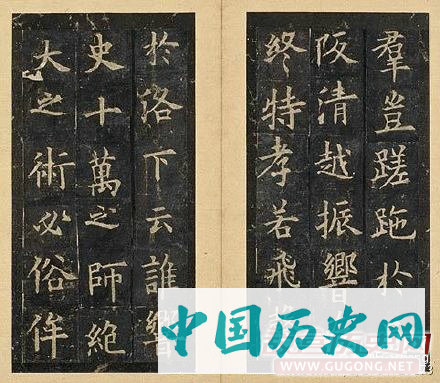 羣豈蹉跎於
阪清越振響
終特孝若飛
於洛下云誰
史十萬之師絶
大之術必俗侔
中国历史网
WWW.GUGONG.NET